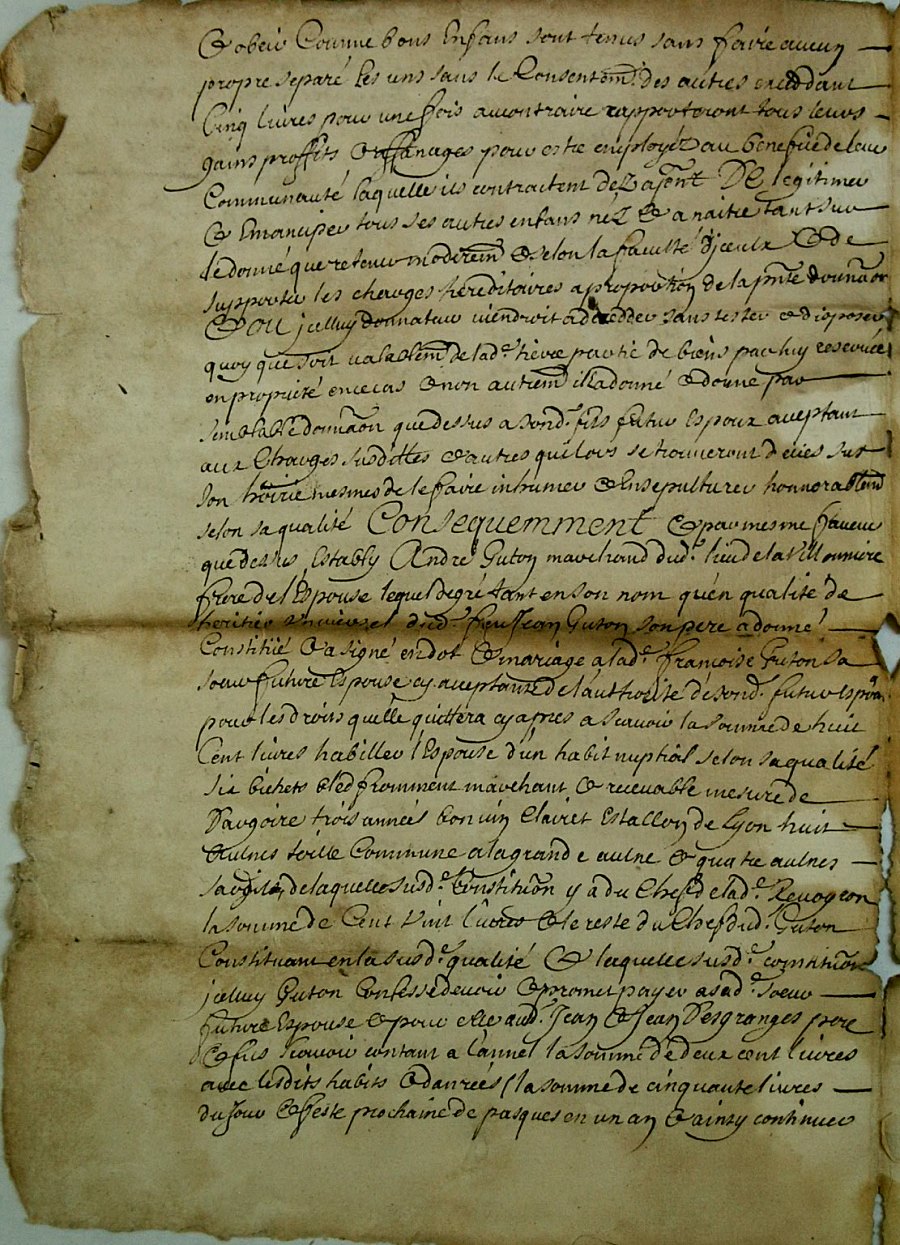 & obeir Comme bons Enfans sont tenus sans faire aucun
propre separé les uns sans le Consentem.t des autres excedant
Cinq livres pour une fois au contraire rapporteront tous leurs
gains proffits & affanages pour estre employéz au benefice de leur
Communauté laquelle ils contractent dez a pnt DE legitimer
& Emanciper tous ses autres enfans néz & a naitre tant sur
le donné que retenu moderem & selon la faculté djceux & de
supporter les charges héréditaires a proportion de la pnte donnaon
& OU jcelluy donnateur viendroit a decedder sans tester & disposer
quoy que soit valablem de lad.e tierce partie de biens par luy reservée
en propriété en ce cas & non autrem il a donné & donne par
semblable donnaon que dessus a sond. fils futur Espoux aceptant
aux Charges susdittes & autres qui lors se trouveront deües sur
son hoirie mesmes de le faire inhumer & Ensepulturer honnorablem
selon sa qualité Consequemment & par mesme faveur
que dessus Estably André Guton marchand dud. lieu de la Villonniere
frere de l'Espouse lequel de gré tant en son nom qu'en qualité de
heritier universel dud. feu Jean Guton son pere a donné
Constitué & asigné en dot & mariage a lad.e françoise Guton sa
soeur future Espouse cy aceptante de l'authorité de sond. futur Espoux
pour les droits quelle quittera cy apres a scavoir la somme de huit
Cent livres habiller l'Espouse d'un habit nuptial selon sa qualité
six bichets bled fromment marchant & recevable mesure de
Dargoire trois années bon vin Clairet Estallon de Lyon huit
aulnes toille Commune a la grande aulne & quatre aulnes
de laquelle susd.e Constitution y a du Chef de lad.e
la somme de Cent vint livres & le reste du Chef dud. Guton
Constituant en la susd.e qualité & laquelle susd.e constitution
jcelluy Guton Confesse devoir & promet payer a sad.e soeur
future Espouse & pour elle aud. Jean & Jean Desgranges pere
& fils scavoir contant a l'annel la somme de deux cent livres
avec lesdits habits & danrées la somme de cinquante livres
du jour & feste prochaine de pasques en un an & ainsy continuer